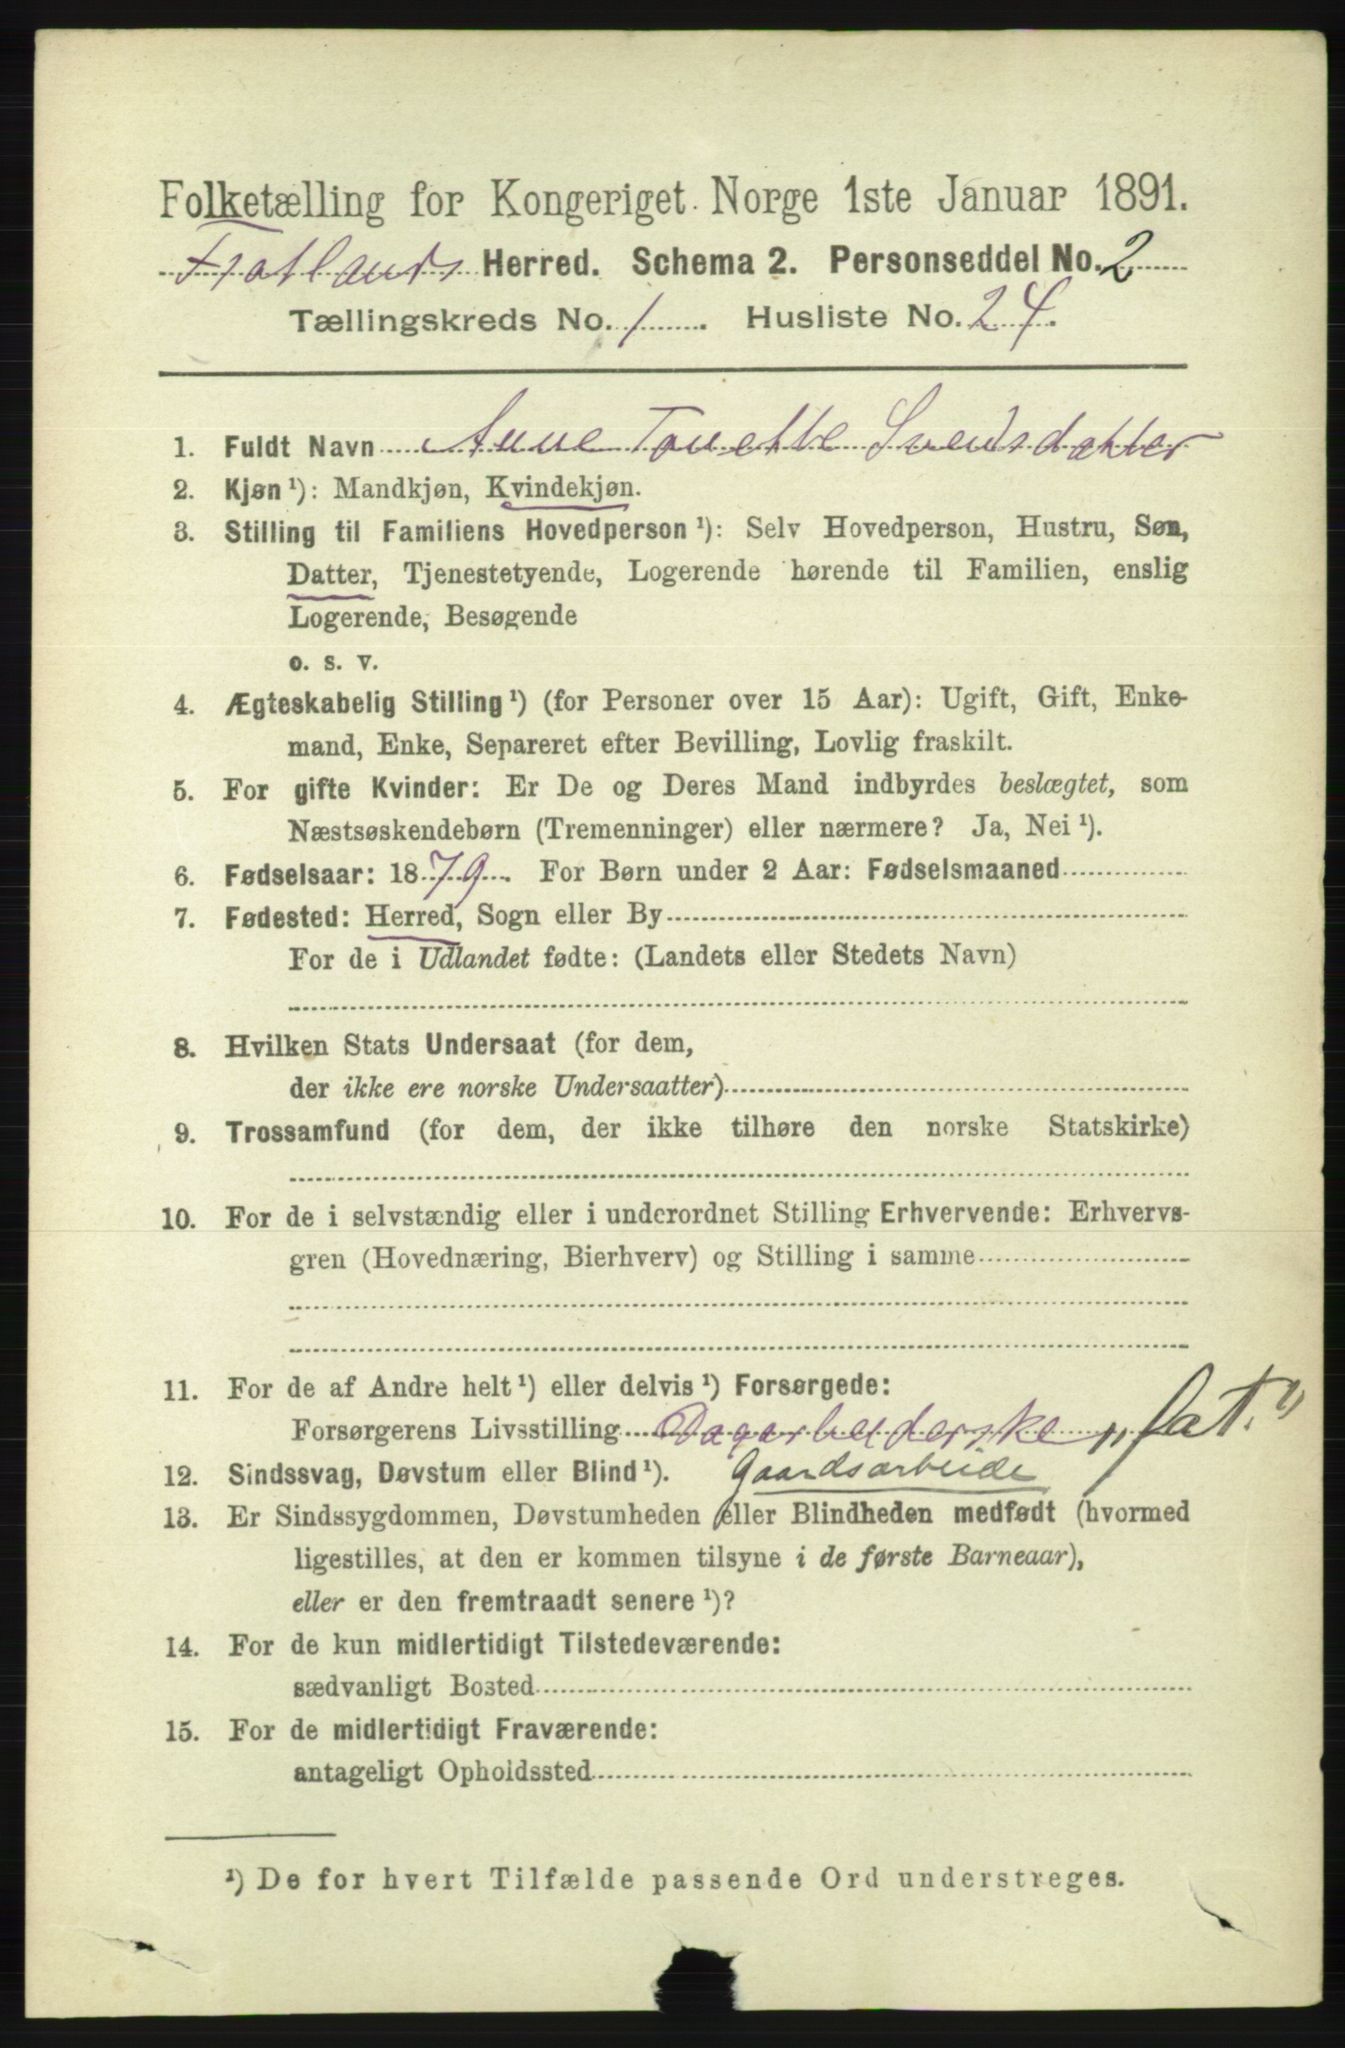 Folketælling for Kongeriget Norge 1ste Januar 1891.
Fjotlands Herred. Schema 2. Personseddel No. 2
Tællingskreds No. 1. Husliste No. 24.
1. Fuldt Navn Anne Tonette Svendsdatter
2. Kjøn ¹): Mandkjøn, Kvindekjøn.
3. Stilling til Familiens Hovedperson ¹): Selv Hovedperson, Hustru, Søn,
Datter, Tjenestetyende, Logerende hørende til Familien, enslig
Logerende, Besøgende
o. s. v.
4. Ægteskabelig Stilling ¹) (for Personer over 15 Aar): Ugift, Gift, Enke-
mand, Enke, Separeret efter Bevilling, Lovlig fraskilt.
5. For gifte Kvinder: Er De og Deres Mand indbyrdes beslægtet, som
Næstsøskendebørn (Tremenninger) eller nærmere? Ja, Nei ¹).
6. Fødselsaar: 1879. For Børn under 2 Aar: Fødselsmaaned
7. Fødested: Herred, Sogn eller By
For de i Udlandet fødte: (Landets eller Stedets Navn)
8. Hvilken Stats Undersaat (for dem,
der ikke ere norske Undersaatter)
9. Trossamfund (for dem, der ikke tilhøre den norske Statskirke)
10. For de i selvstændig eller i underordnet Stilling Erhvervende: Erhvervs-
gren (Hovednæring, Bierhverv) og Stilling i samme
11. For de af Andre helt ¹) eller delvis ¹) Forsørgede:
Forsørgerens Livsstilling Dagarbeiderske, "fat."
12. Sindssvag, Døvstum eller Blind ¹). Gaardsarbeide
13. Er Sindssygdommen, Døvstumheden eller Blindheden medfødt (hvormed
ligestilles, at den er kommen tilsyne i de første Barneaar),
eller er den fremtraadt senere ¹)?
14. For de kun midlertidigt Tilstedeværende:
sædvanligt Bosted
15. For de midlertidigt Fraværende:
antageligt Opholdssted
¹) De for hvert Tilfælde passende Ord understreges.